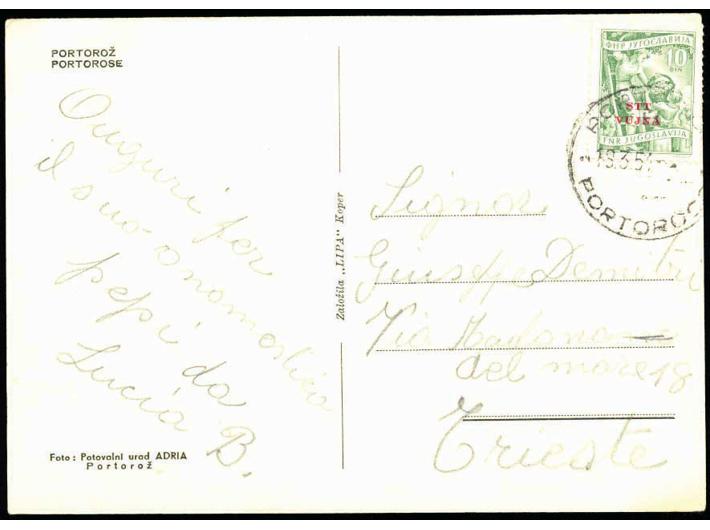 PORTOROŽ
PORTOROSE
Auguri per
il suo onomastico
pepi da
Lucia B.
Foto: Potovalni urad ADRIA
Portorož
Založila „LIPA" Koper
ФНР ЈУГОСЛАВИЈА
10
DIN
STT
VUJNA
FNR JUGOSLAVIJA
18.3.54
PORTOROSE
Signor
Giuseppe Demitri
Via Madonna
del mare 18
Trieste